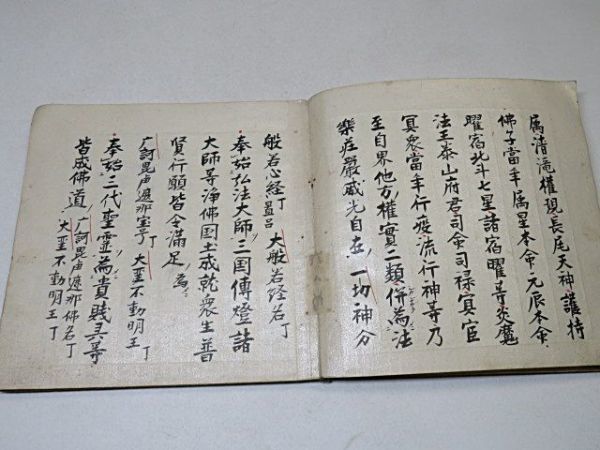 属清滝權現長尾天神護持
佛子當年属星本命元辰本命
曜宿北斗七星諸宿曜等炎魔
法王泰山府君司命司禄冥官
冥衆當年行疫流行神等乃
至自界他方權實二類併為法
樂荘嚴威光自在一切神分
般若心経丁 大般若経名丁
奉始弘法大師三国傳燈諸
大師等淨佛国土成就衆生普
賢行願皆令満足為
广訶毘盧遮那宝号丁 大聖不動明王丁
奉始三代聖霊為貴賎霊等
皆成佛道 广訶毘盧遮那佛名丁 大聖不動明王丁